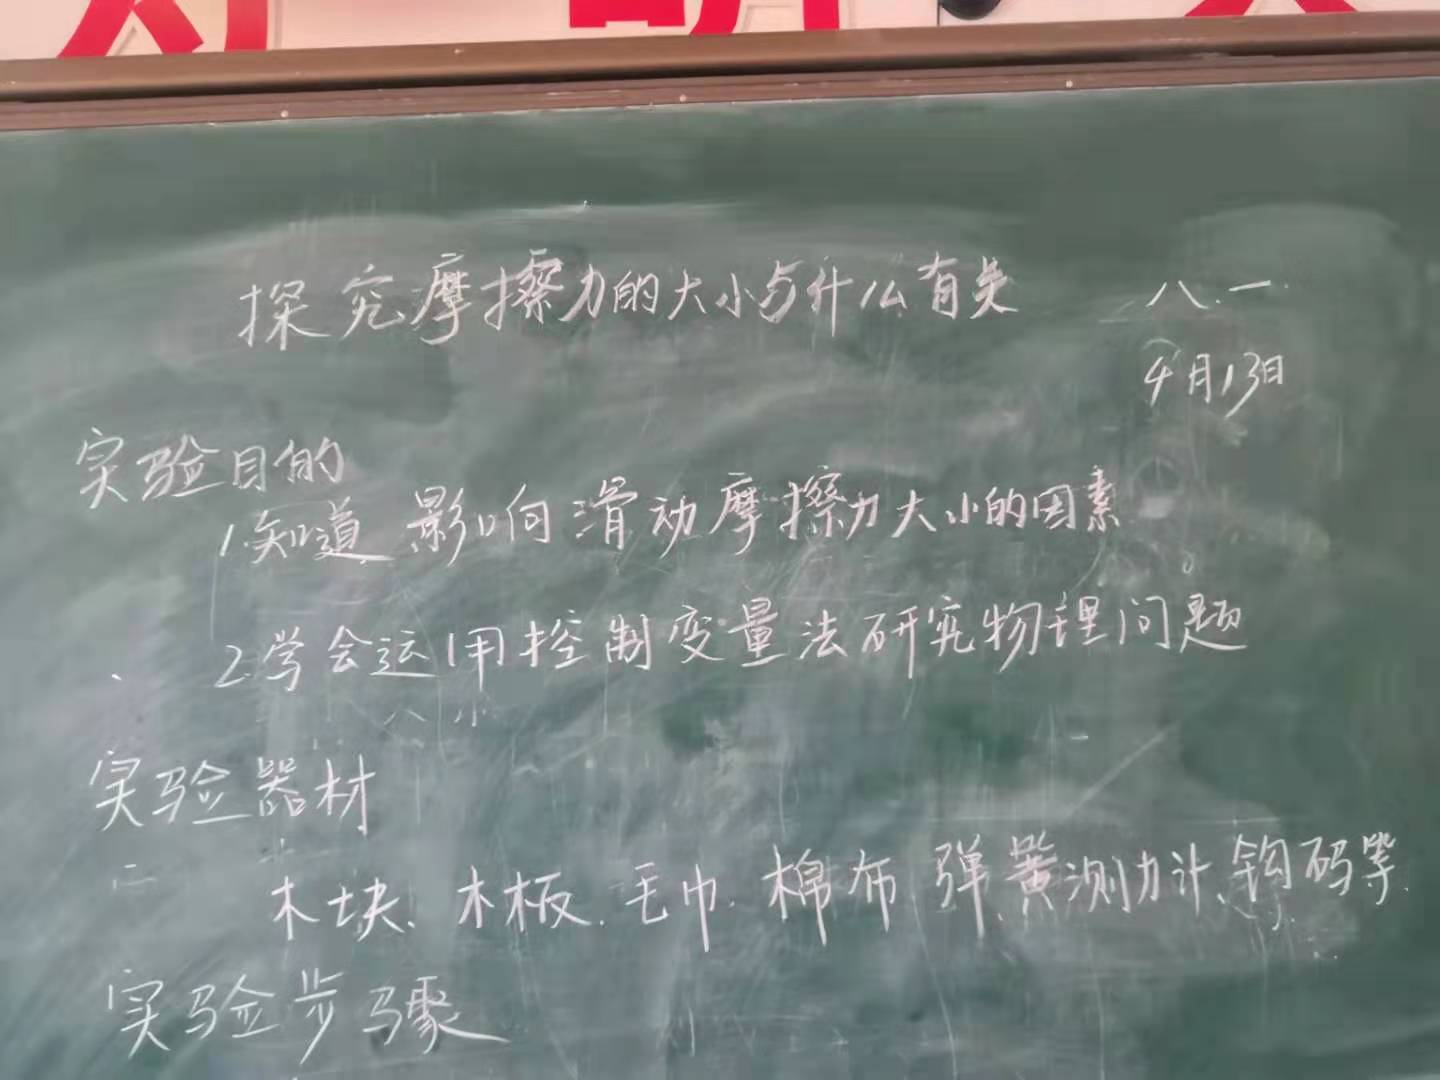 探究摩擦力的大小与什么有关
八.一.
4月13日
实验目的
1.知道 影响滑动摩擦力大小的因素
2.学会运用控制变量法研究物理问题
实验器材
木块、木板、毛巾、棉布、弹簧测力计、钩码等.
实验步骤